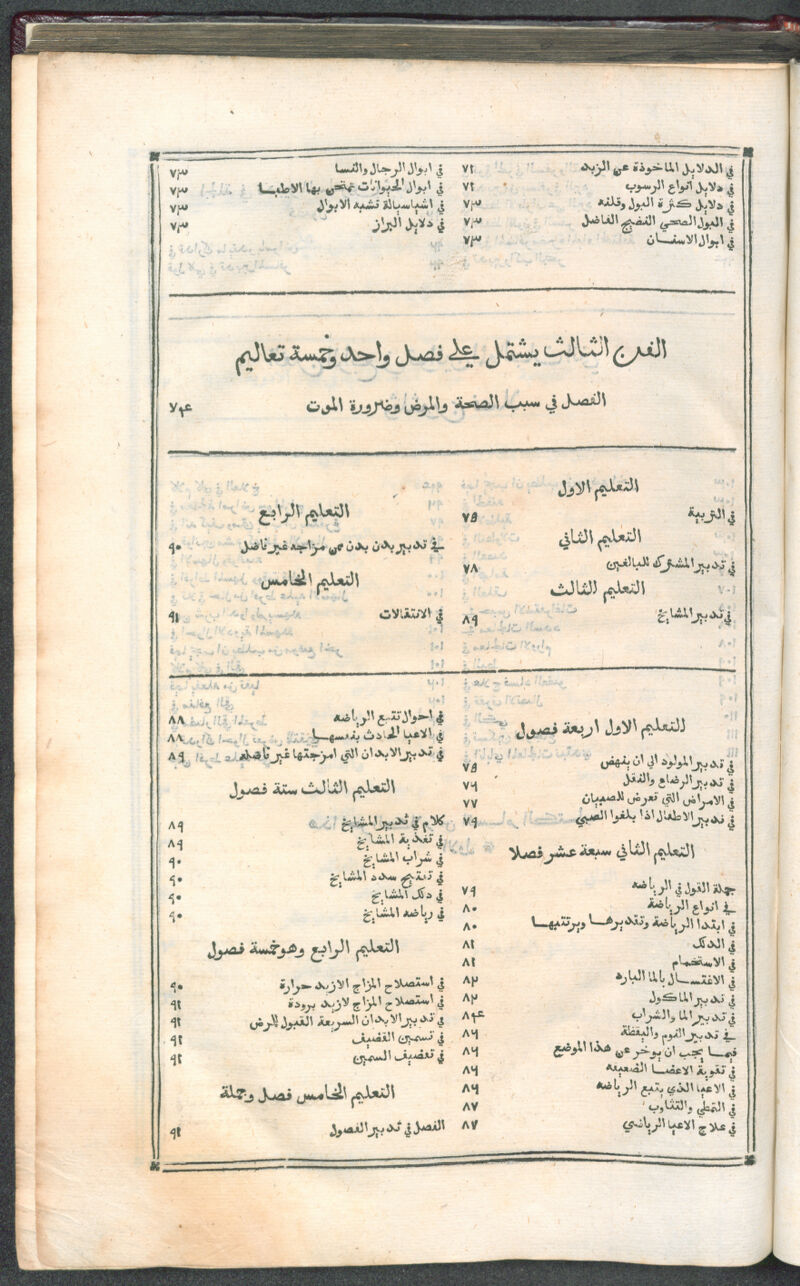 في الدلايل الماخوذة عن الزبد ٧٢
في دلايل انواع الرسوب ٧٢
في دلايل كثرة البول وقلته ٧٣
في البول الصحي النضيج الفاضل ٧٣
في ابوال الاسنان ٧٣
في ابوال الرجال والنسا ٧٣
في ابوال الحيوانات يمتحن بها الاطبا ٧٣
في اشيا سيالة تشبه الابوال ٧٣
في دلايل البراز ٧٣
الفن الثالث يشتمل علي فصل واحد وخمسة تعاليم
الفصل في سبب الصحة والمرض وضرورة الموت ٧٤
التعليم الاول
في التربية ٧٥
التعليم الثاني
في تدبير المشترك للبالغين ٧٨
التعليم الثالث
في تدبير المشايخ ٨٩
التعليم الرابع
في تدبير بدن بدن من مزاجه غير فاضل ٩٠
التعليم الخامس
في الانتقالات ٩١
التعليم الاول اربعة فصول
في تدبير المولود الي ان ينهض ٧٥
في تدبير الرضاع والنقل ٧٦
في الامراض التي تعرض للصبيان ٧٧
في تدبير الاطفال اذا بلغوا الصبي ٧٩
التعليم الثاني سبعة عشر فصلا
جملة القول في الرياضه ٧٩
في انواع الرياضة ٨٠
في ابتدا الرياضة وتقديرها وبرتتيها ٨٠
في الدلك ٨١
في الاستحمام ٨١
في الاغتسال بالما البارد ٨٢
في تدبير الماكول ٨٢
في تدبير الما والشراب ٨٤
في تدبير النوم واليقظة ٨٦
فيما يجب ان يوخر عن هذا الموضع ٨٦
في تقوية الاعضا الضعيفه ٨٦
في الاعيا الذي يتبع الرياضه ٨٦
في التمطي والتثاوب ٨٧
في علاج الاعيا الرياضي ٨٧
في احوال تتبع الرياضه ٨٨
في الاعيا الحادث بنفسها ٨٨
في تدبير الابدان التي امزجتها غير فاضله ٨٩
التعليم الثالث ستة فصول
كلام في تدبير المشايخ ٨٩
في تغذية المشايخ ٨٩
في شراب المشايخ ٩٠
في تفتيح سدد المشايخ ٩٠
في دلك المشايخ ٩٠
في رياضه المشايخ ٩٠
التعليم الرابع وهو خمسة فصول
في استصلاح المزاج الازيد حرارة ٩٠
في استصلاح المزاج لازيد برودة ٩١
في تدبير الابدان السريعة القبول للرض ٩١
في تسمين القضيف ٩١
في تقضيف السمين ٩١
التعليم الخامس فصل وجملة
الفصل في تدبير الفصول ٩١